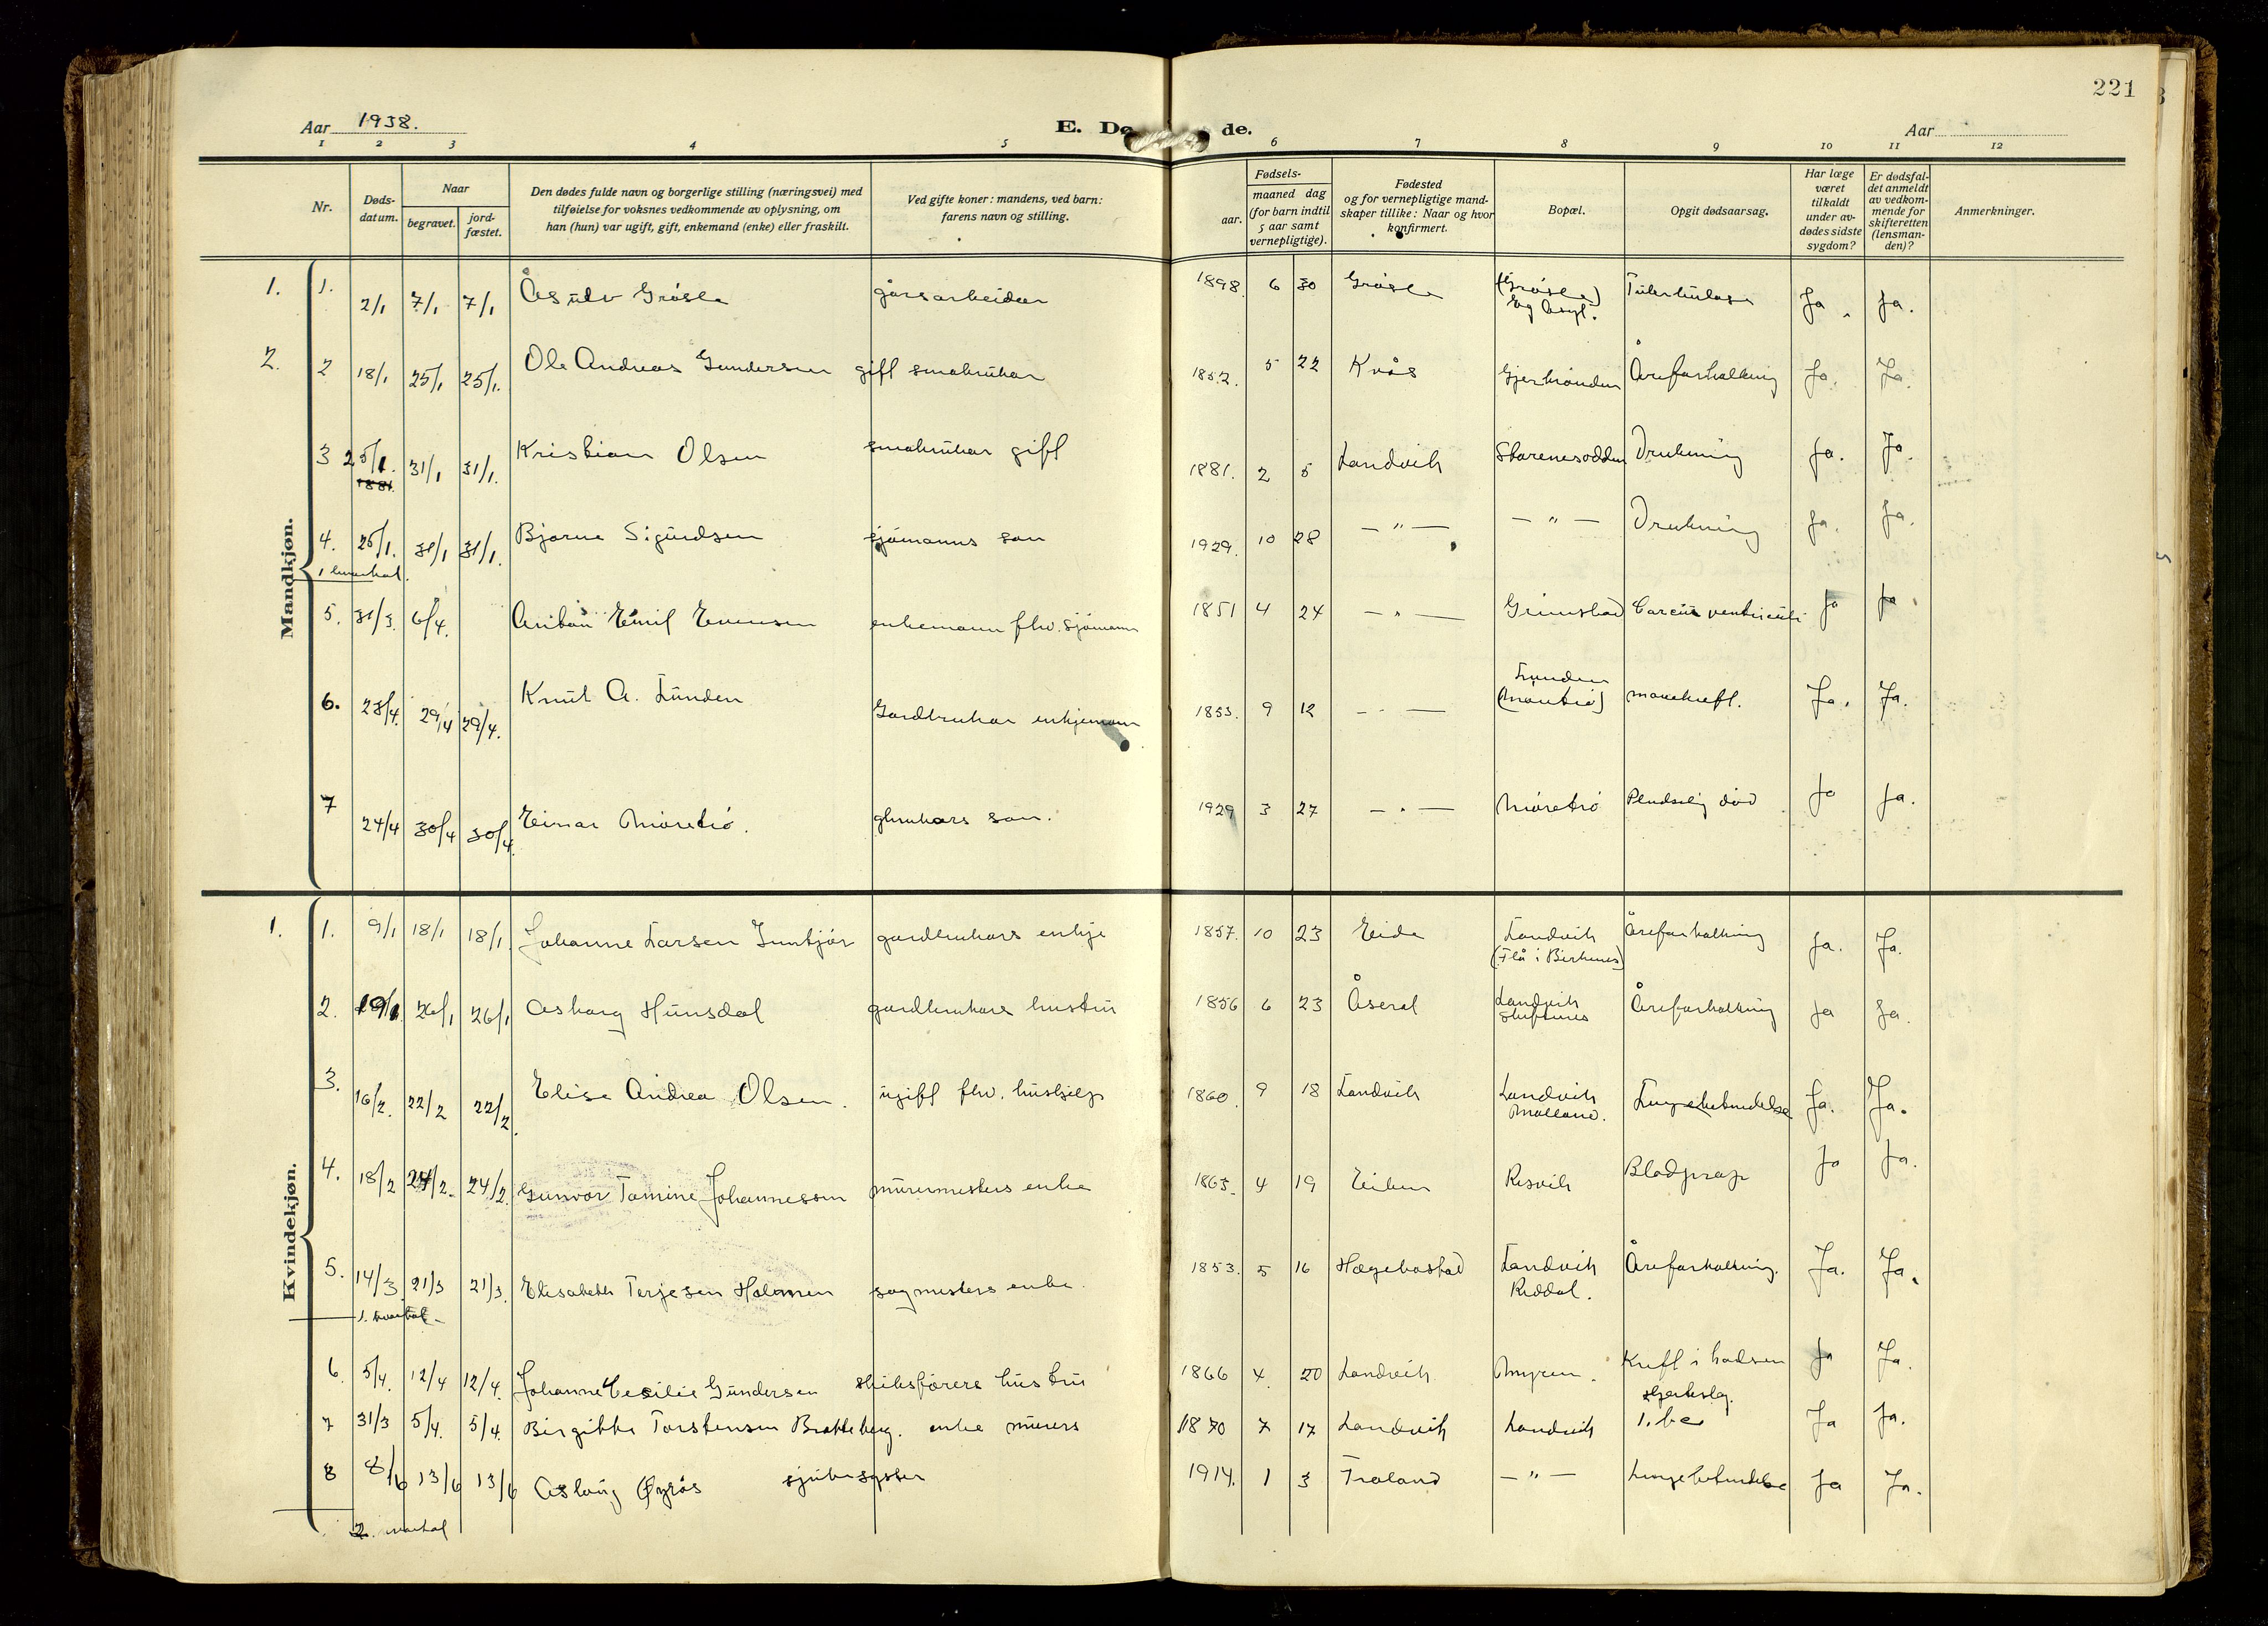 221
Aar 1938.
E. Dø de.
Aar
1 2 3 4 5 6 7 8 9 10 11 12
Nr.
Døds-datum.
Naar
begravet.
jord-fæstet.
Den dødes fulde navn og borgerlige stilling (næringsvei) med tilføielse for voksnes vedkommende av oplysning, om han (hun) var ugift, gift, enkemand (enke) eller fraskilt.
Ved gifte koner: mandens, ved barn: farens navn og stilling.
Fødsels-
aar.
maaned dag
(for barn indtil 5 aar samt vernepligtige).
Fødested og for vernepligtige mandskaper tillike: Naar og hvor konfirmert.
Bopæl.
Opgit dødsaarsag.
Har læge været tilkaldt under avdødes sidste sygdom?
Er dødsfaldet anmeldt av vedkommende for skifteretten (lensmanden)?
Anmerkninger.
Mandkjøn.
1. 1. 2/1 7/1 7/1 Åsulv Grøsle gårsarbeider 1898. 6 30 Grøsle (Grøsle) Eg Asyl. Tuberkulose Ja. Ja.
2. 2 18/1 25/1 25/1. Ole Andreas Gundersen gift småbrukar 1852. 5 22 Kvås Åreforkalkning Ja. Ja.
3 25/1. 1881. 31/1 31/1. Kristian Olsen småbrukar gift 1881. 2 5 Landvik Drukning Ja. Ja.
4. 25/1. 31/1 31/1. Bjarne Sigurdsen sjømanns son 1929. 10 28 — " — — " — Drukning Ja. Ja.
1 kvartal.
5. 31/3. 6/4. Emil Evensen enkemann fhv. sjømann 1851 4 24 — " — Grimstad ventriculi Ja Ja
6. 23/4. 29/4 29/4. Knut A. Lunden Gardbrukar enkjemann 1853. 9 12 — " — Lunden (Møretrø) mavekreft. Ja. Ja.
7 24/4 30/4 30/4. Einar Møretrø. gbrukars son. 1929 3 27 — " — Møretrø Pludselig død Ja Ja.
Kvindekjøn.
1. 1. 9/1 18/1 18/1 Johanne Larsen gardbrukars enkje 1857. 10 23 Eide Landvik (Flå i Birkenes) Åreforkalkning Ja. Ja.
2. 19/1 26/1 26/1 Asborg Hunsdal gardbrukars hustru 1856 6 23 Åseral Landvik Åreforkalkning Ja Ja.
3. 16/2. 22/2 22/2. Elise Andrea Olsen. ugift fhv. hushjelp 1860. 9 18 Landvik Landvik Molland. Lungebetendelse Ja. Ja.
4. 18/2 24/2. 24/2. Gunvor Tomine Johannessen murermesters enke 1863. 4 19 Eiken Resvik Blodprop Ja Ja.
5. 14/3 21/3 21/3. Elisabeth Terjesen Holmen sagmesters enke. 1853. 5 16 Hægebostad Landvik Reddal. Åreforkalkning. Ja. Ja.
1. kvartal.
6. 5/4. 12/4 12/4. Johanne Cecilie Gundersen skibsførers hustru 1866 4. 20 Landvik Myren. Kreft i Ja Ja.
7 31/3 5/4. 5/4. Birgitte Torstensen Bratteberg. enke murers 1870 7 17 Landvik Landvik Hjerteslag. Ja Ja.
8 8/6 13/6 13/6 Aslaug Øyrås sjukesyster 1914. 1 3 Traland — " — Lungebetendelse Ja Ja.
2. kvartal